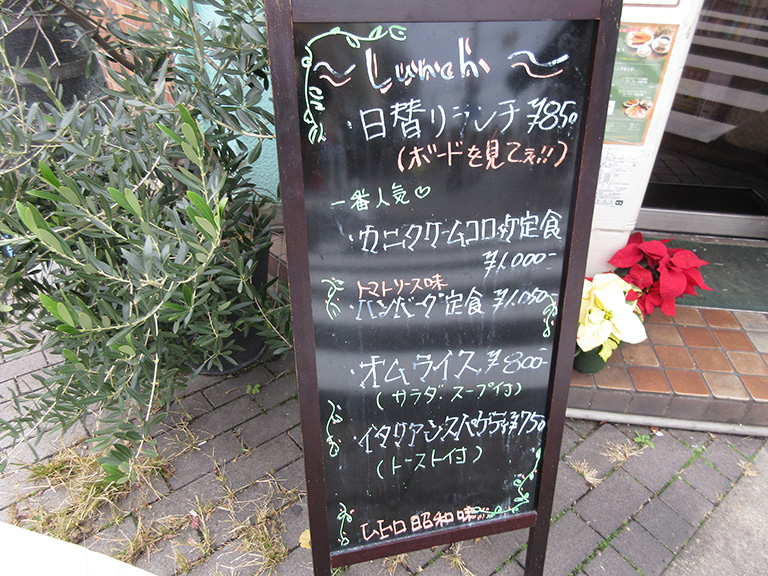 ～Lunch～
・日替りランチ ¥850
(ボードを見てぇ!!)
一番人気♡
・カニクリームコロッケ定食
¥1,000-
トマトソース味
・ハンバーグ定食 ¥1,050-
・オムライス ¥800-
(サラダ・スープ付)
・イタリアンスパゲティ ¥750
(トースト付)
昭和味!!!